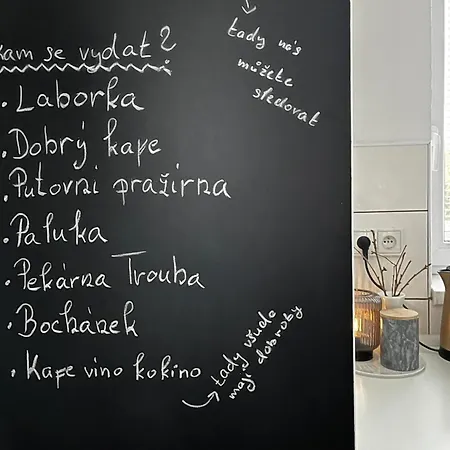 kam se vydat?
tady nás
můžete
sledovat
• Laborka
• Dobrý kafe
• Putovní pražírna
• Paluka
• Pekárna Trouba
• Bochánek
• Kafe vino kokino
tady všude
mají dobroby